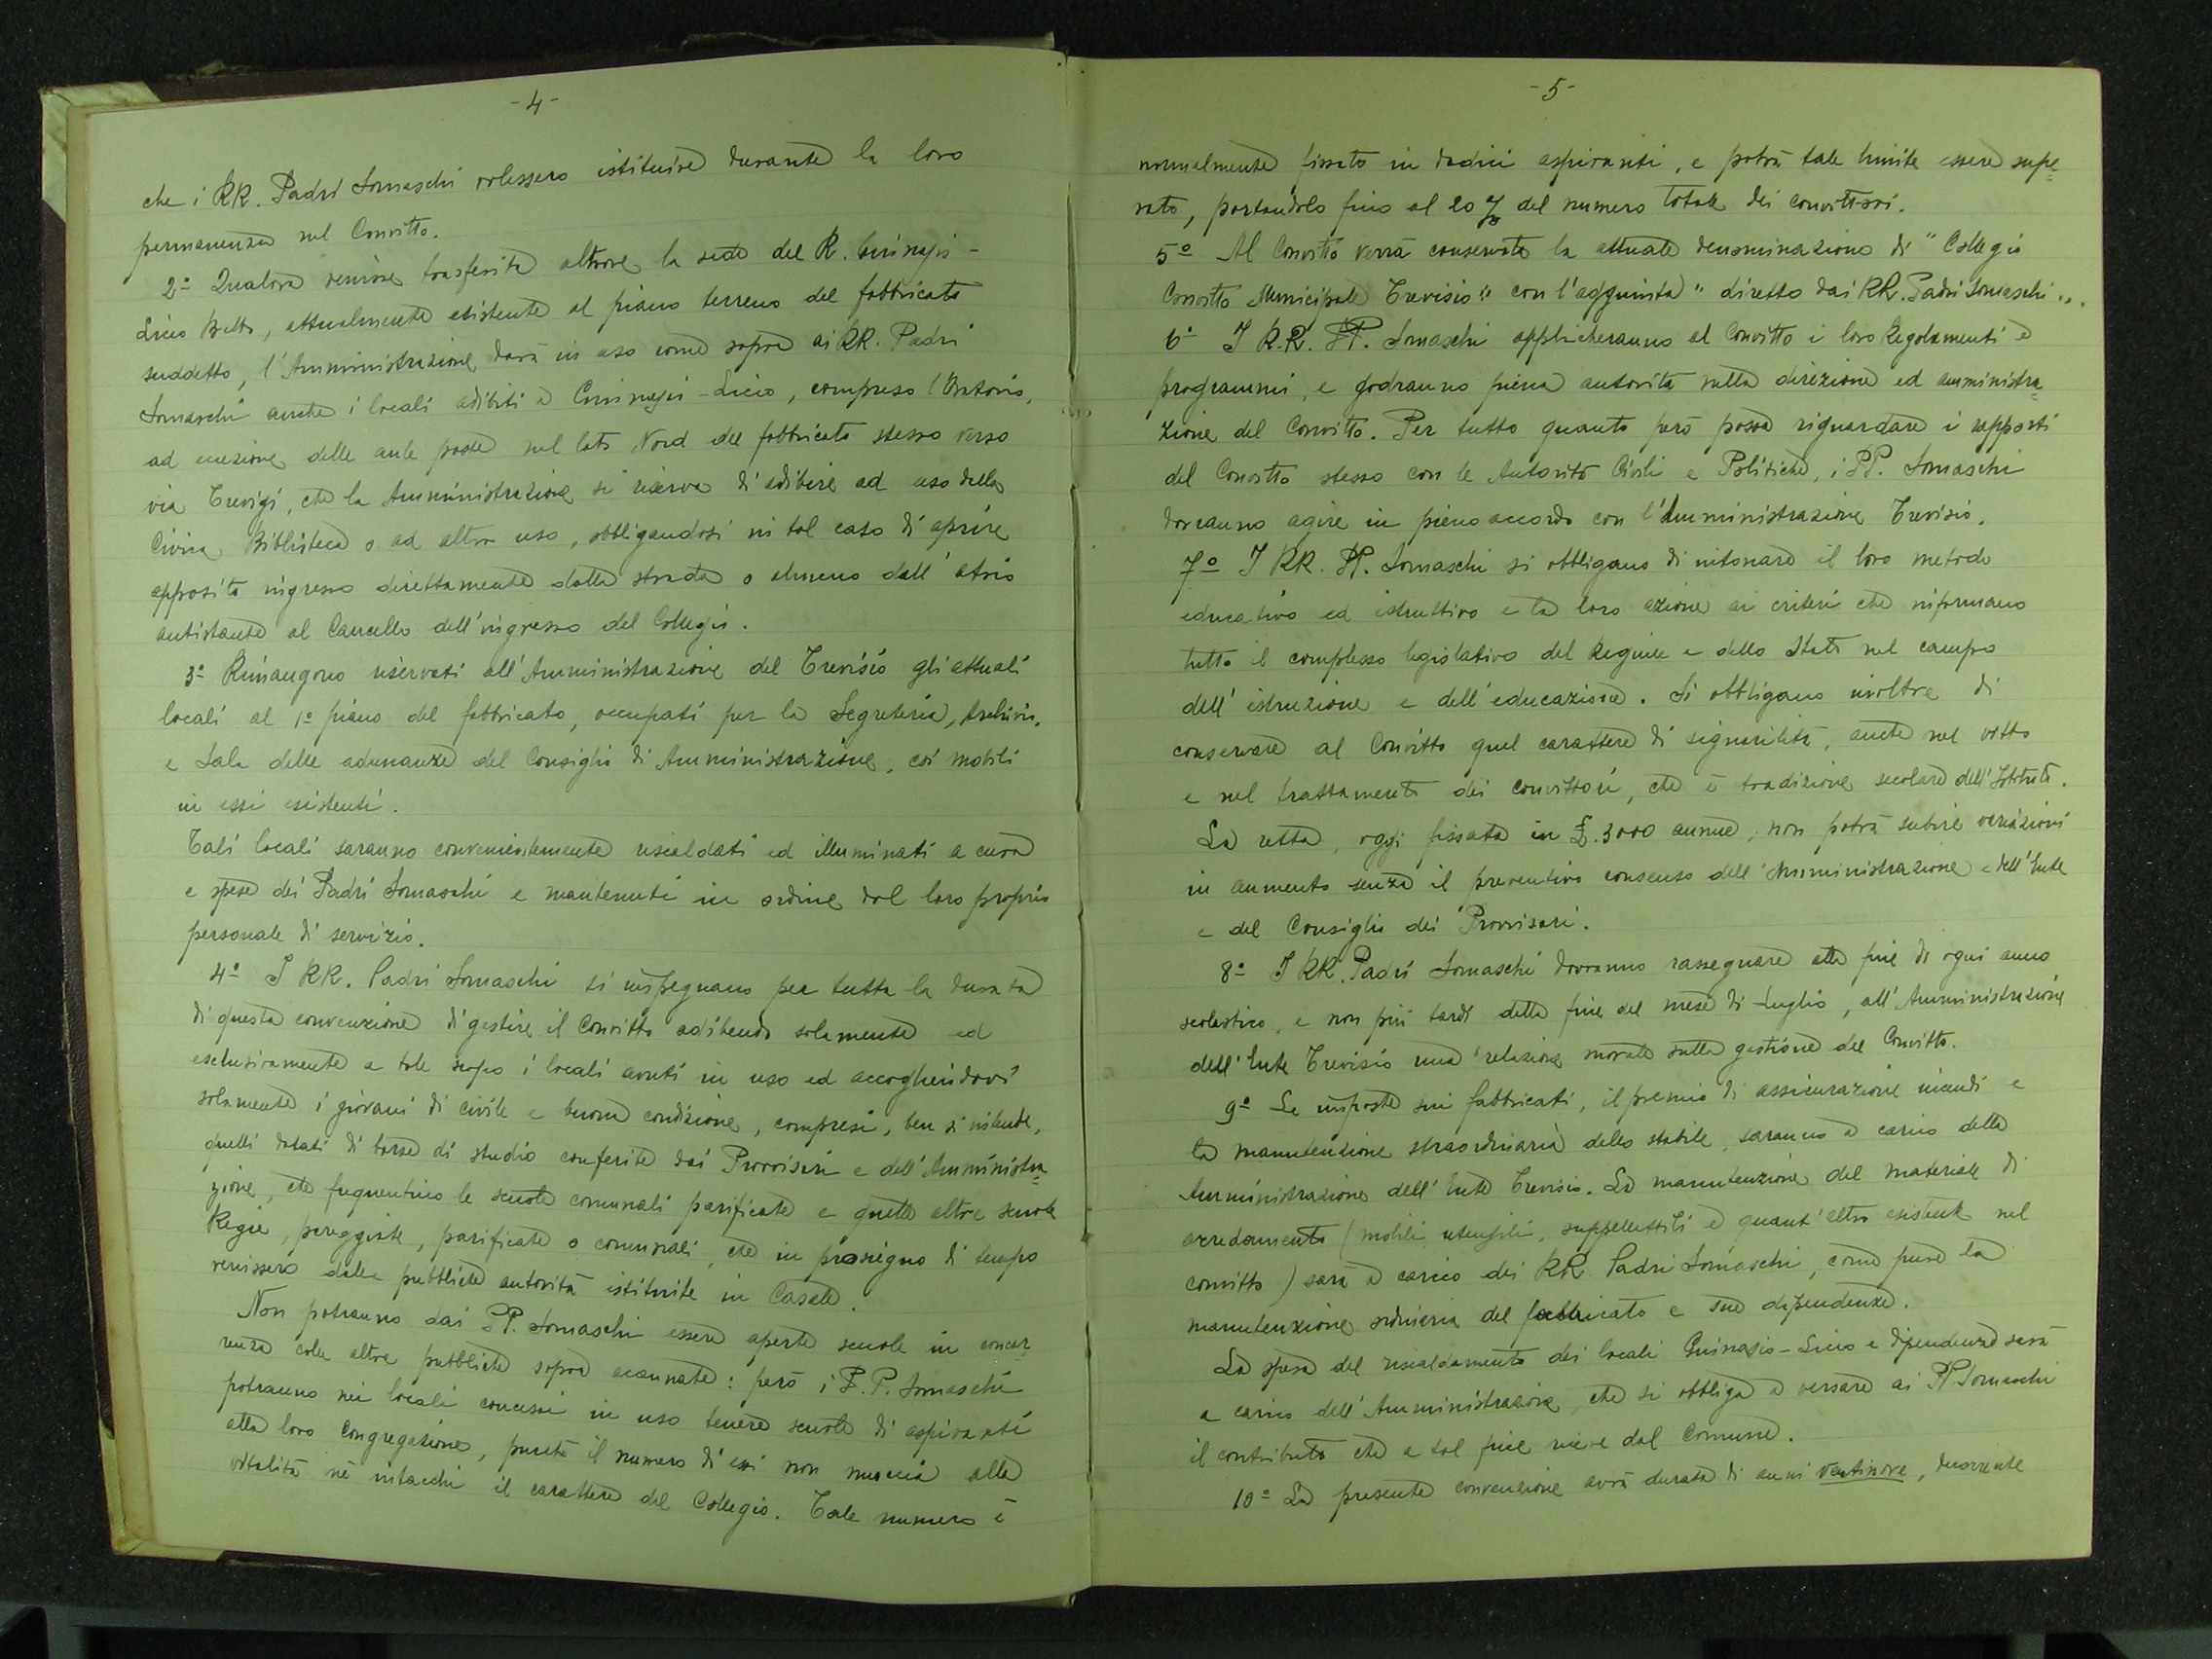 -4-
che i RR. Padri Somaschi volessero istituire durante la loro
permanenza nel Convitto.
2º Qualora venisse trasferita altrove la sede del R. Ginnasio-
Liceo Balbo, attualmente esistente al piano terreno del fabbricato
suddetto, l'Amministrazione darà in uso come sopra ai RR. Padri
Somaschi anche i locali adibiti a Ginnasio-Liceo, compreso l'Oratorio,
ad eccezione delle aule poste nel lato Nord del fabbricato stesso verso
via Trevigi, che la Amministrazione si riserva di adibire ad uso della
Civica Biblioteca o ad altro uso, obbligandosi in tal caso di aprire
apposito ingresso direttamente dalla strada o almeno dall'atrio
antistante al Cancello dell'ingresso del Collegio.
3º Rimangono riservati all'Amministrazione del Trevisio gli attuali
locali al 1º piano del fabbricato, occupati per la Segreteria, Archivio,
e Sala delle adunanze del Consiglio di Amministrazione, coi mobili
in essi esistenti.
Tali locali saranno convenientemente riscaldati ed illuminati a cura
e spese dei Padri Somaschi e mantenuti in ordine dal loro proprio
personale di servizio.
4º I RR. Padri Somaschi si impegnano per tutta la durata
di questa convenzione di gestire il Convitto adibendo solamente ed
esclusivamente a tale scopo i locali avuti in uso ed accogliendovi
solamente i giovani di civile e buona condizione, compresi, ben si intende,
quelli dotati di borse di studio conferite dai Provvisori e dell'Amministra=
zione, che frequentino le scuole comunali parificate e quelle altre scuole
Regie, pareggiate, parificate o comunali, che in prosieguo di tempo
venissero dalle pubbliche autorità istituite in Casale.
Non potranno dai PP. Somaschi essere aperte scuole in concor=
renza colle altre pubbliche sopra accennate: però i P.P. Somaschi
potranno nei locali concessi in uso tenere scuole di aspiranti
alla loro Congregazione, purchè il numero di essi non nuoccia alla
vitalità nè intacchi il carattere del Collegio. Tale numero è
-5-
normalmente fissato in dodici aspiranti, e potrà tale limite essere supe=
rato, portandolo fino al 20 % del numero totale dei convittori.
5º Al Convitto verrà conservata la attuale denominazione di "Collegio
Convitto Municipale Trevisio" con l'aggiunta "diretto dai RR. Padri Somaschi".
6º I R.R. PP. Somaschi applicheranno al Convitto i loro Regolamenti e
programmi, e godranno piena autorità nella direzione ed amministra=
zione del Convitto. Per tutto quanto però possa riguardare i rapporti
del Convitto stesso con le Autorità Civili e Politiche, i PP. Somaschi
dovranno agire in pieno accordo con l'Amministrazione Trevisio.
7º I RR. PP. Somaschi si obbligano di intonare il loro metodo
educativo ed istruttivo e la loro azione ai criteri che informano
tutto il complesso legislativo del Regime e dello Stato nel campo
dell'istruzione e dell'educazione. Si obbligano inoltre di
conservare al Convitto quel carattere di signorilità, anche nel vitto
e nel trattamento dei convittori, che è tradizione secolare dell'Istituto.
La retta, oggi fissata in £. 3000 annue, non potrà subire variazioni
in aumento senza il preventivo consenso dell'Amministrazione dell'Ente
e del Consiglio dei Provvisori.
8º I RR. Padri Somaschi dovranno rassegnare alla fine di ogni anno
scolastico, e non più tardi della fine del mese di Luglio, all'Amministrazione
dell'Ente Trevisio una relazione morale sulla gestione del Convitto.
9º Le imposte sui fabbricati, il premio di assicurazione incendi e
la manutenzione straordinaria dello stabile, saranno a carico della
Amministrazione dell'Ente Trevisio. La manutenzione del materiale di
arredamento (mobili, utensili, suppellettili e quant'altro esistente nel
convitto) sarà a carico dei RR. Padri Somaschi, come pure la
manutenzione ordinaria del fabbricato e sue dipendenze.
La spesa del riscaldamento dei locali Ginnasio-Liceo e dipendenze sarà
a carico dell'Amministrazione, che si obbliga a versare ai PP Somaschi
il contributo che a tal fine riceve dal Comune.
10º La presente convenzione avrà durata di anni ventinove, decorrente